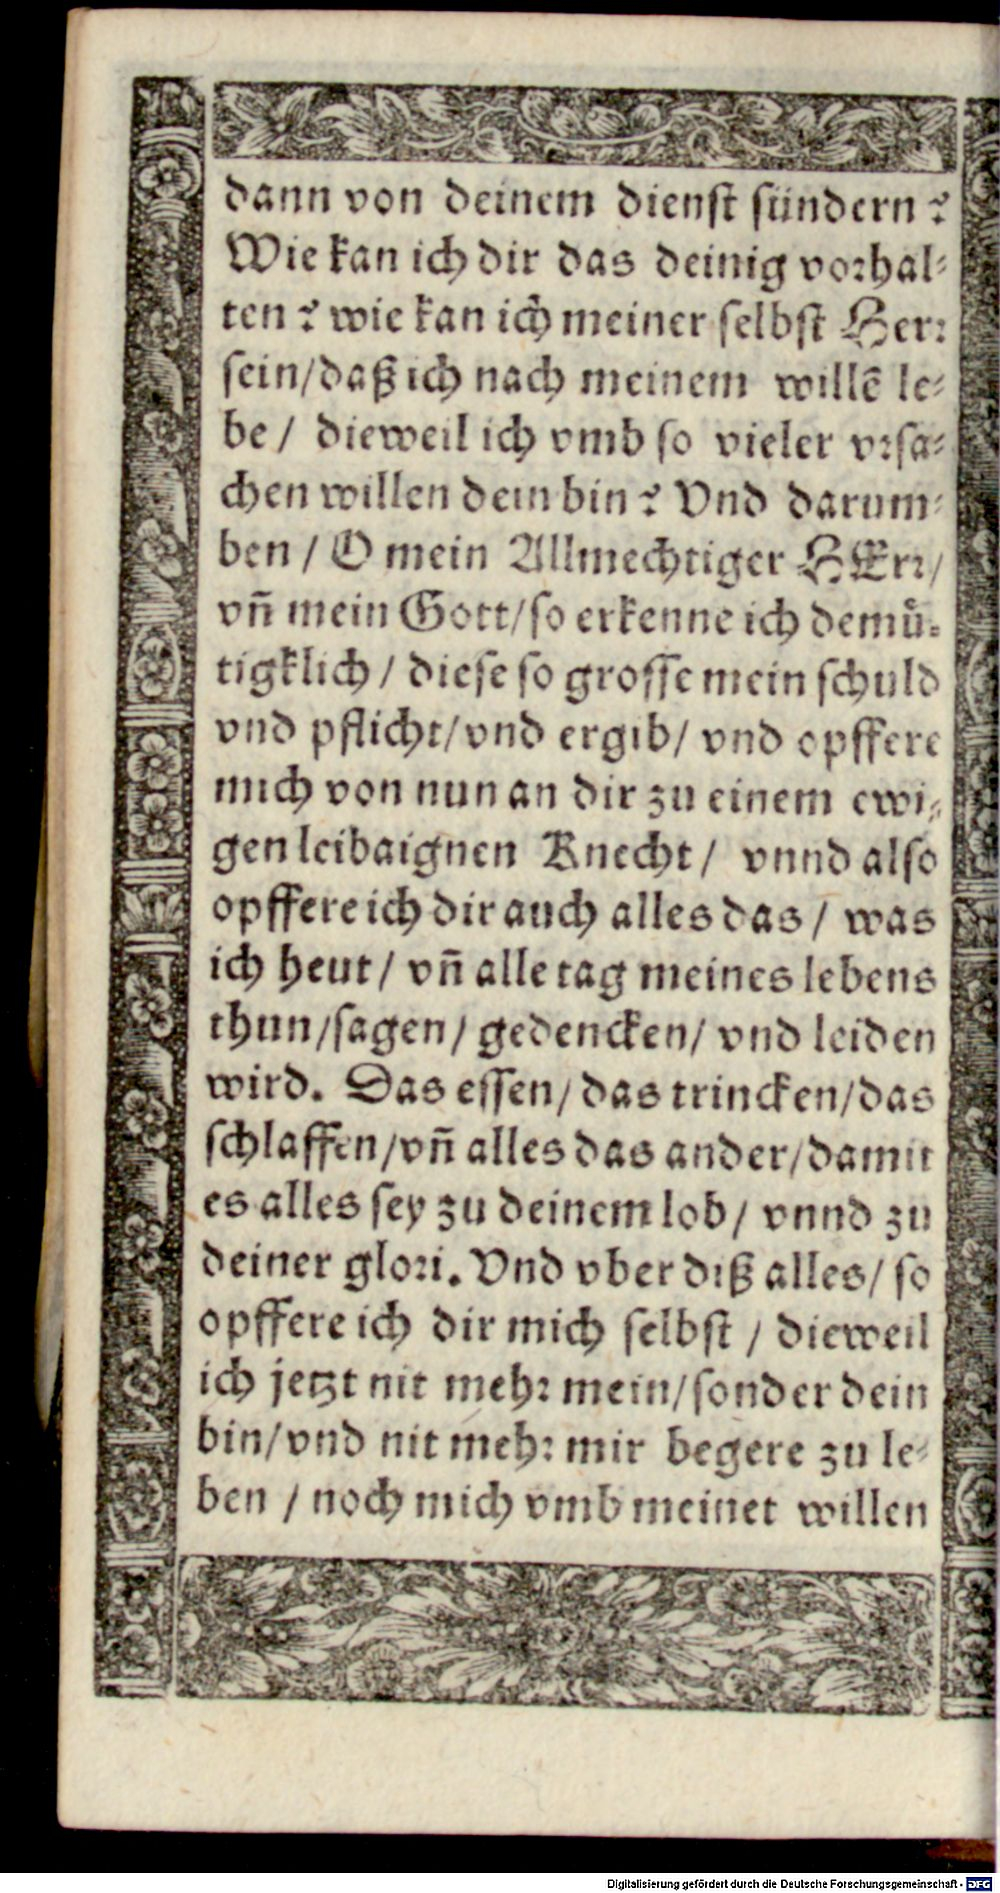 dann von deinem dienst sündern?
Wie kan ich dir das deinig vorhal-
ten? wie kan ich meiner selbst Herr
sein/daß ich nach meinem willē le-
be/ dieweil ich vmb so vieler vrsa-
chen willen dein bin? Vnd darum-
ben/ O mein Allmechtiger HErr/
vñ mein Gott/so erkenne ich demuͤ-
tigklich/ diese so grosse mein schuld
vnd pflicht/vnd ergib/ vnd opffere
mich von nun an dir zu einem ewi-
gen leibaignen Knecht/ vnnd also
opffere ich dir auch alles das/ was
ich heut/ vñ alle tag meines lebens
thun/sagen/ gedencken/ vnd leiden
wird. Das essen/das trincken/das
schlaffen/vñ alles das ander/damit
es alles sey zu deinem lob/ vnnd zu
deiner glori. Vnd vber diß alles/ so
opffere ich dir mich selbst/ dieweil
ich jetzt nit mehr mein/sonder dein
bin/vnd nit mehr mir begere zu le-
ben/ noch mich vmb meinet willen
Digitalisierung gefördert durch die Deutsche Forschungsgemeinschaft - DFG